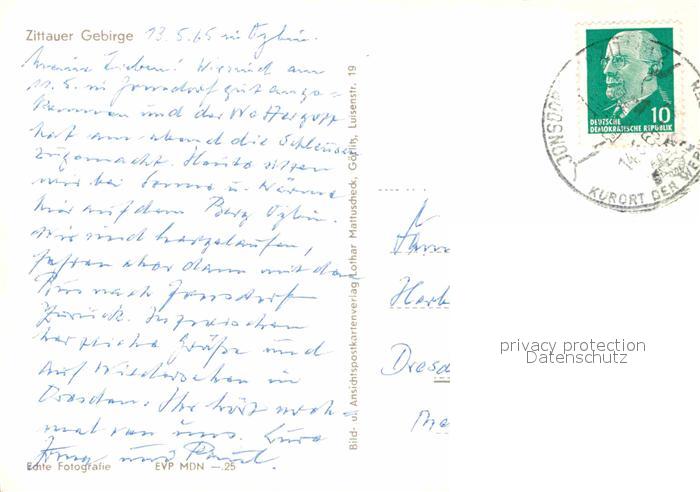 Zittauer Gebirge 13.5.65 in Oybin.
Meine Lieben! Wir sind am
11.5. in Jonsdorf gut ange-
kommen und der Wettergott
hat am abend die Schleusen
zugemacht. Heute sitzen
wir bei Sonne u. Wärme
hier auf dem Berg Oybin.
Wir sind hergelaufen,
fahren aber dann mit dem
Bus nach Jonsdorf
zurück. Inzwischen
herzliche Grüße und
auf Wiedersehen in
Dresden. Ihr hört noch-
mal von uns. Eure
und
Echte Fotografie EVP MDN —.25
Bild- u. Ansichtspostkartenverlag Lothar Mattuscheck, Görlitz, Luisenstr. 19
10
DEUTSCHE
DEMOKRATISCHE REPUBLIK
JONSDORF
KURORT DER
Herb
Dresd
privacy protection
Datenschutz